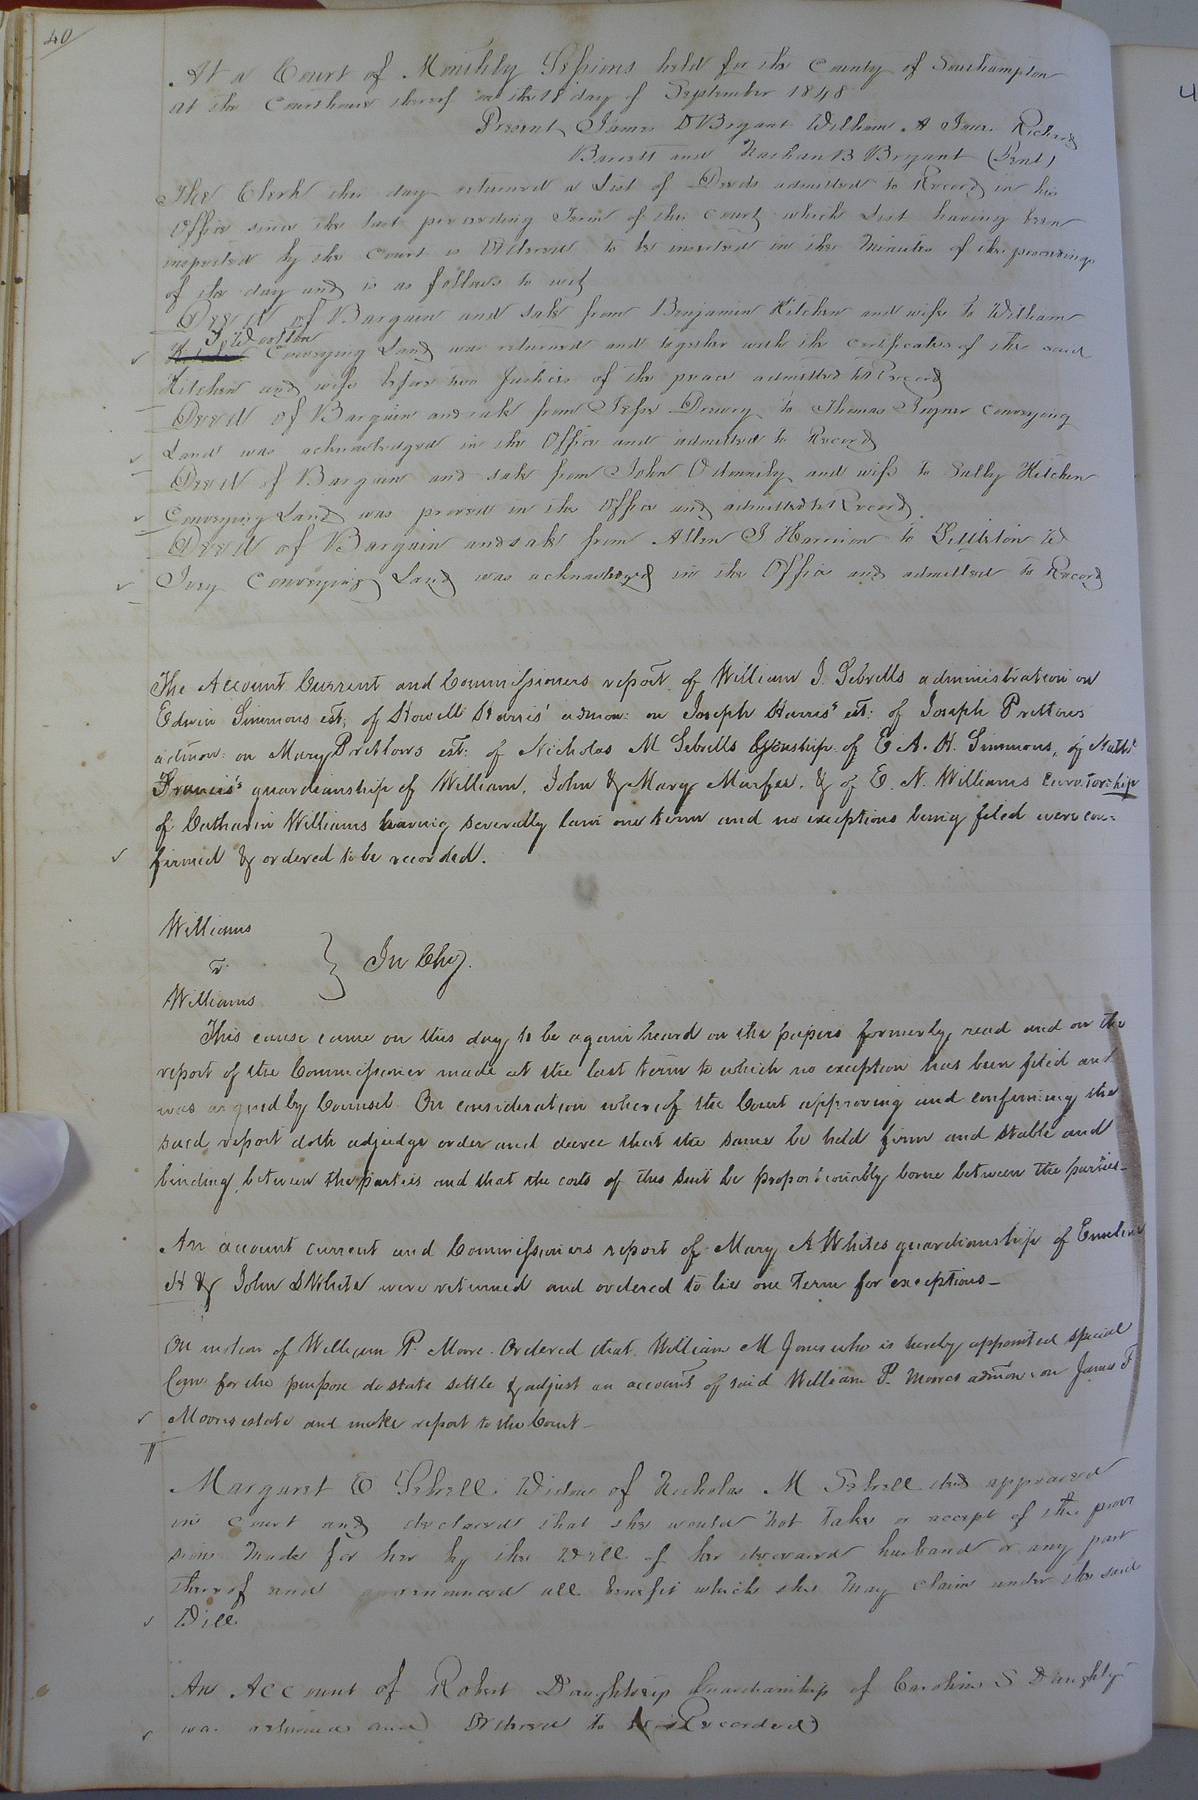 40
At a Court of Monthly Sessions held for the County of Southampton
at the Courthouse thereof on the 18 day of September 1848
Present James D Bryant William A Jones Richard
Barrett and Nathan B Bryant (Gent)
The Clerk this day returned a List of Deeds admitted to Record in his
Office since the last preceding Term of this Court which List having been
inspected by the Court is Ordered to be inserted in the Minutes of the proceedings
of the day and is as follows to wit
Deed of Bargain and sale from Benjamin Kitchen and wife to William
Conveying Land was returned and together with the certificates of the said
Kitchen and wife before two Justices of the peace admitted to Record
Deed of Bargain and sale from Jesse Drewry to Thomas Joyner Conveying
Land was acknowledged in the Office and admitted to Record
Deed of Bargain and sale from John and wife to Sally Kitchen
Conveying Land was proved in the Office and admitted to Record.
Deed of Bargain and sale from Allen J Harrison to Littleton W
Ivey Conveying Land was acknowledged in the Office and admitted to Record
The Account Current and Commissioners report of William J. Sebrells administration on
Edwin Simmons est; of Howell Harris' admon: on Joseph Harris' est: of Joseph Pretlows
admon: on Mary Pretlows est: of Nicholas M Sebrells Gdnship of E A. H. Simmons, of Nathl
Francis's guardianship of William, John & Mary Murfee, & of E. N. Williams Curatorship
of Catharin Williams having severally lain one term and no exceptions being filed were con=
firmed & ordered to be recorded.
Williams
v.
Williams
In Chy.
This cause came on this day to be again heard on the papers formerly read and on the
report of the Commissioner made at the last term to which no exception has been filed and
was argued by Counsel. On consideration whereof the Court approving and confirming the
said report doth adjudge order and decree that the same be held firm and stable and
binding between the parties and that the costs of this suit be proportionably borne between the parties_
An account current and Commissioners report of Mary A Whites guardianship of Emeline
H & John S White were returned and ordered to lie one term for exceptions_
On motion of William P. Moore. Ordered that William M Jones who is hereby appointed special
Com for the purpose do state settle & adjust an account of said William P. Moores admon: on James F
Moores estate and make report to the Court_
Margaret Sebrell Widow of Nicholas M Sebrell decd appeared
in Court and declared that she would not take or accept of the provi
sions made for her by the Will of her deceased husband or any part
thereof and renounced all benefit which she may claim under the said
Will
An Account of Robert Daughtreys Guardianship of Caroline S
was returned and Ordered to be Recorded